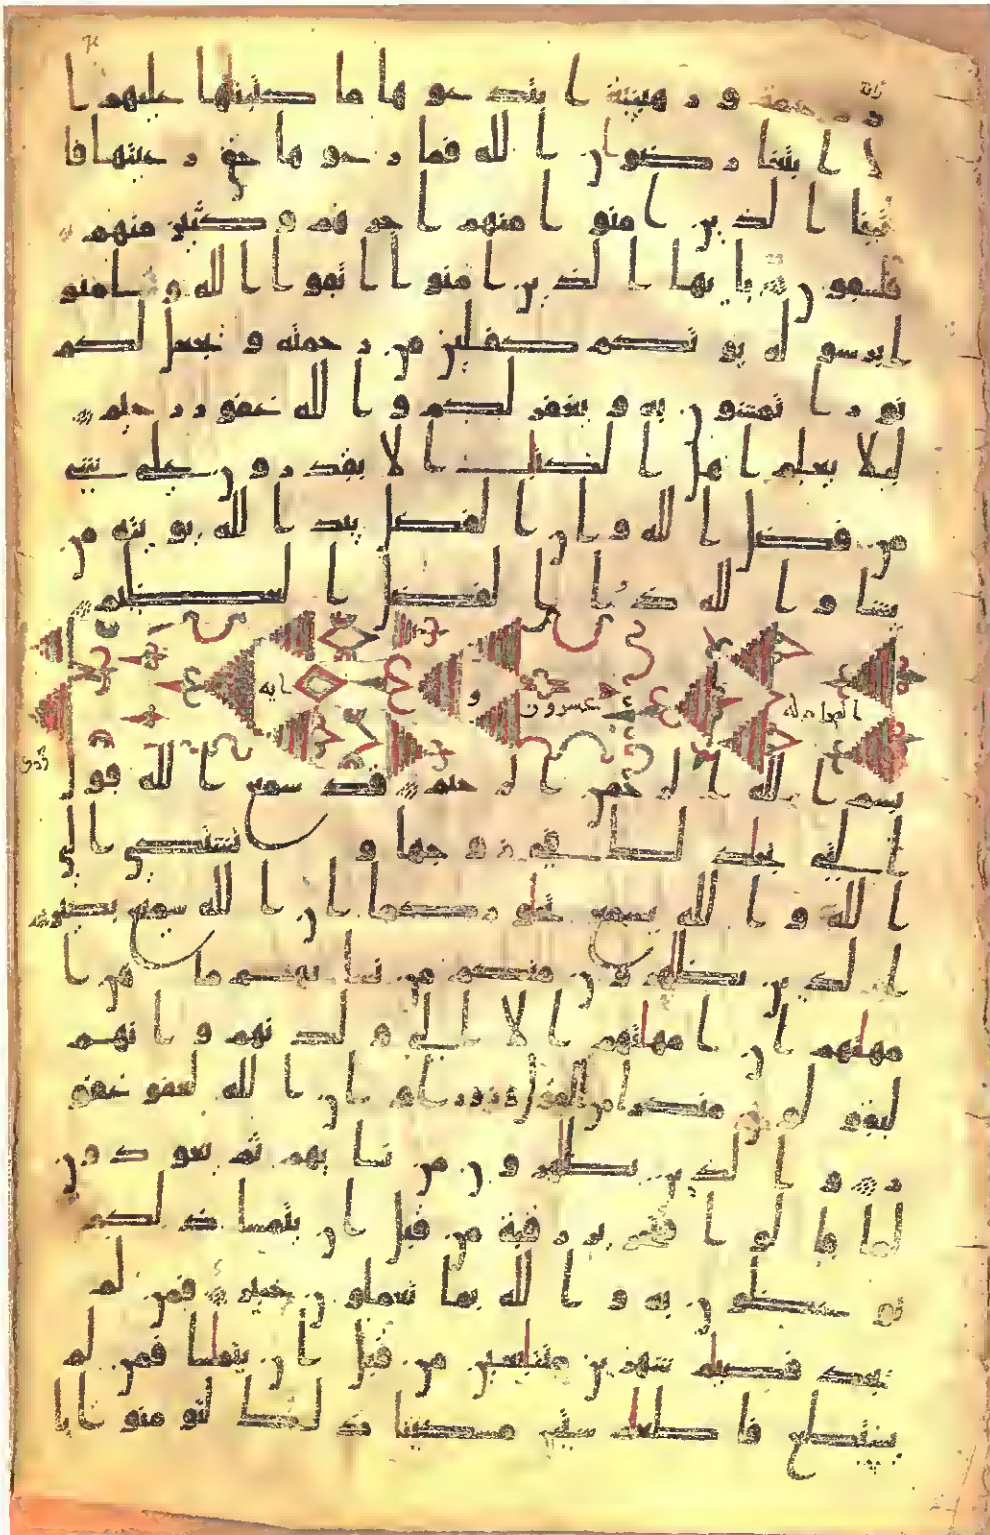 رافة ورحمة ورهبنية ابتدعوها ما كتبنها عليهم ا
لا ابتغا رضوان الله فما رعوها حق رعيتها فا
تينا الذين امنوا منهم اجرهم وكثير منهم
فسقون يايها الذين امنوا اتقوا الله وامنو
ا برسوله يوتكم كفلين من رحمته ويجعل لكم
نورا تمشون به ويغفر لكم والله غفور رحيم
ليلا يعلم اهل الكتاب الا يقدرون على شي
من فضل الله وان الفضل بيد الله يوتيه من
يشا والله ذو الفضل العظيم
المجادله عشرون و ايه
بسم الله الرحمن الرحيم قد سمع الله قول
التي تجادلك في زوجها وتشتكي الى
الله والله يسمع تحاوركما ان الله سميع بصير
الذين يظاهرون منكم من نسايهم ما هن ا
مهاتهم ان امهاتهم الا الي ولدنهم وانهم
ليقولون منكرا من القول وزورا وان الله لعفو غفو
ر والذين يظاهرون من نسايهم ثم يعودون
لما قالوا فتحرير رقبة من قبل ان يتماسا ذلكم
توعظون به والله بما تعملون خبير فمن لم
يجد فصيام شهرين متتابعين من قبل ان يتماسا فمن لم
يستطع فاطعام ستين مسكينا ذلك لتومنوا با